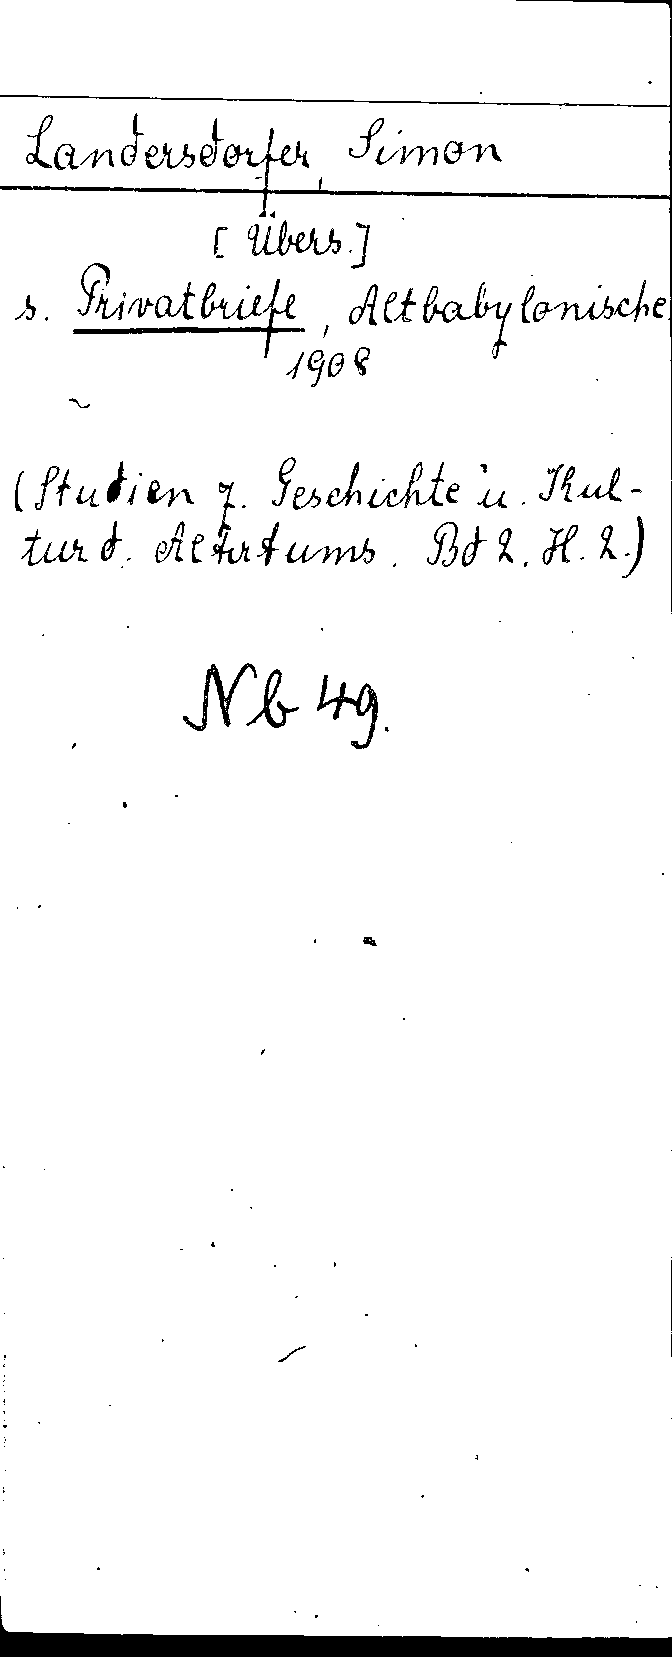 Landersdorfer, Simon
[Übers.]
s. Privatbriefe, Altbabylonische
1908
(Studien z. Geschichte u. Kul-
tur d. Altertums. Bd 2. H. 2.)
Nb 49.